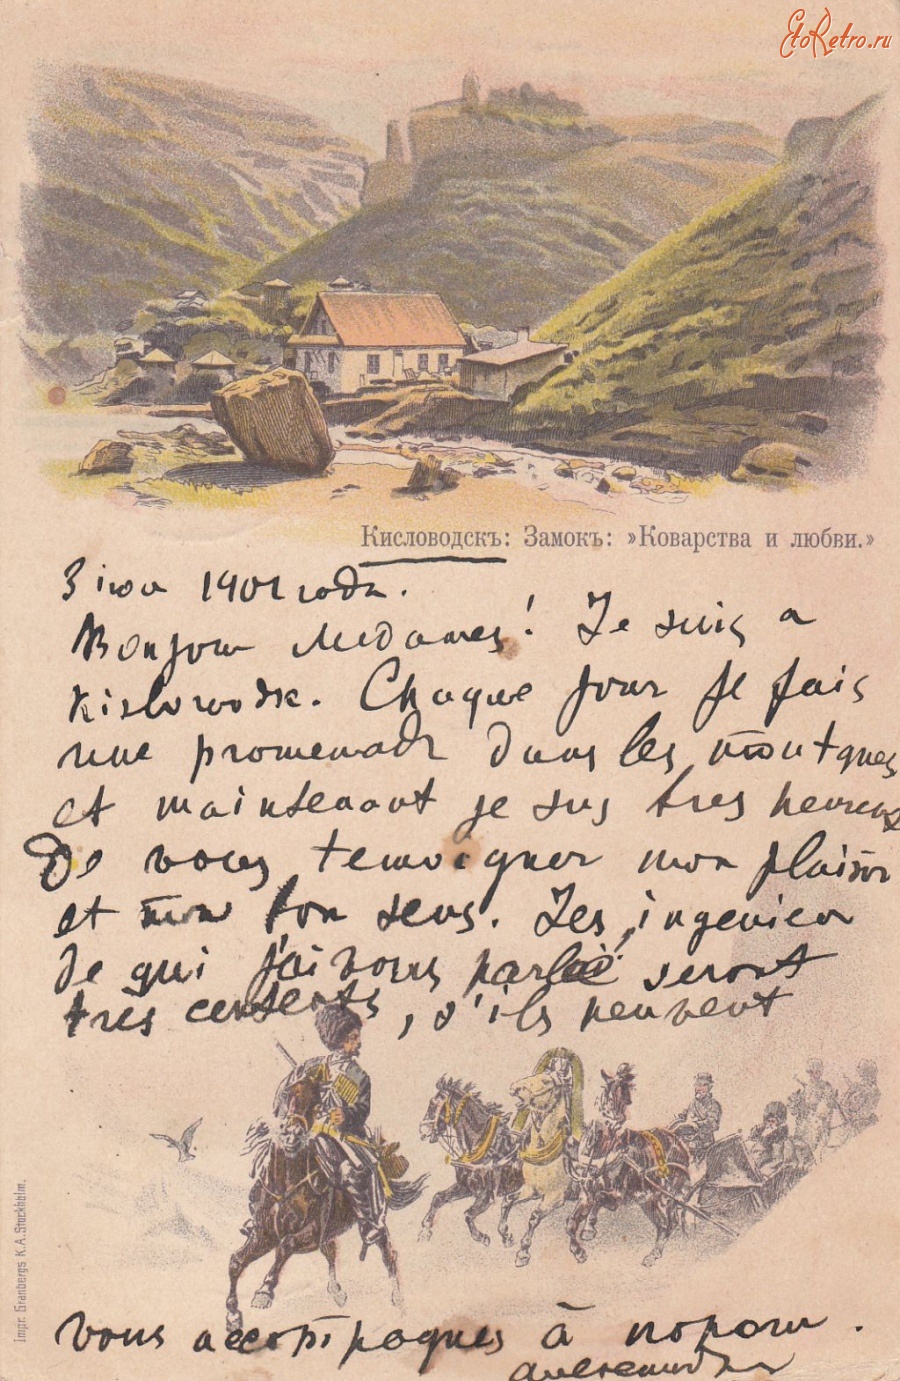 EtoRetro.ru
Кисловодскъ: Замокъ: »Коварства и любви.»
3 1901 года.
Bonjour Medames! Je suis a
Kislowodsk. Chaque jour je fais
une promenade dans les montgnes
et maintenant je sus tres heureux
De vous temoigner mon plaisir
et mon bon sens. Les ingenieu
de qui j'ai vous parlai seront
tres contents, s'ils peuvent
vous accompagnes à
Impr. Granbergs K.A. Stockholm.